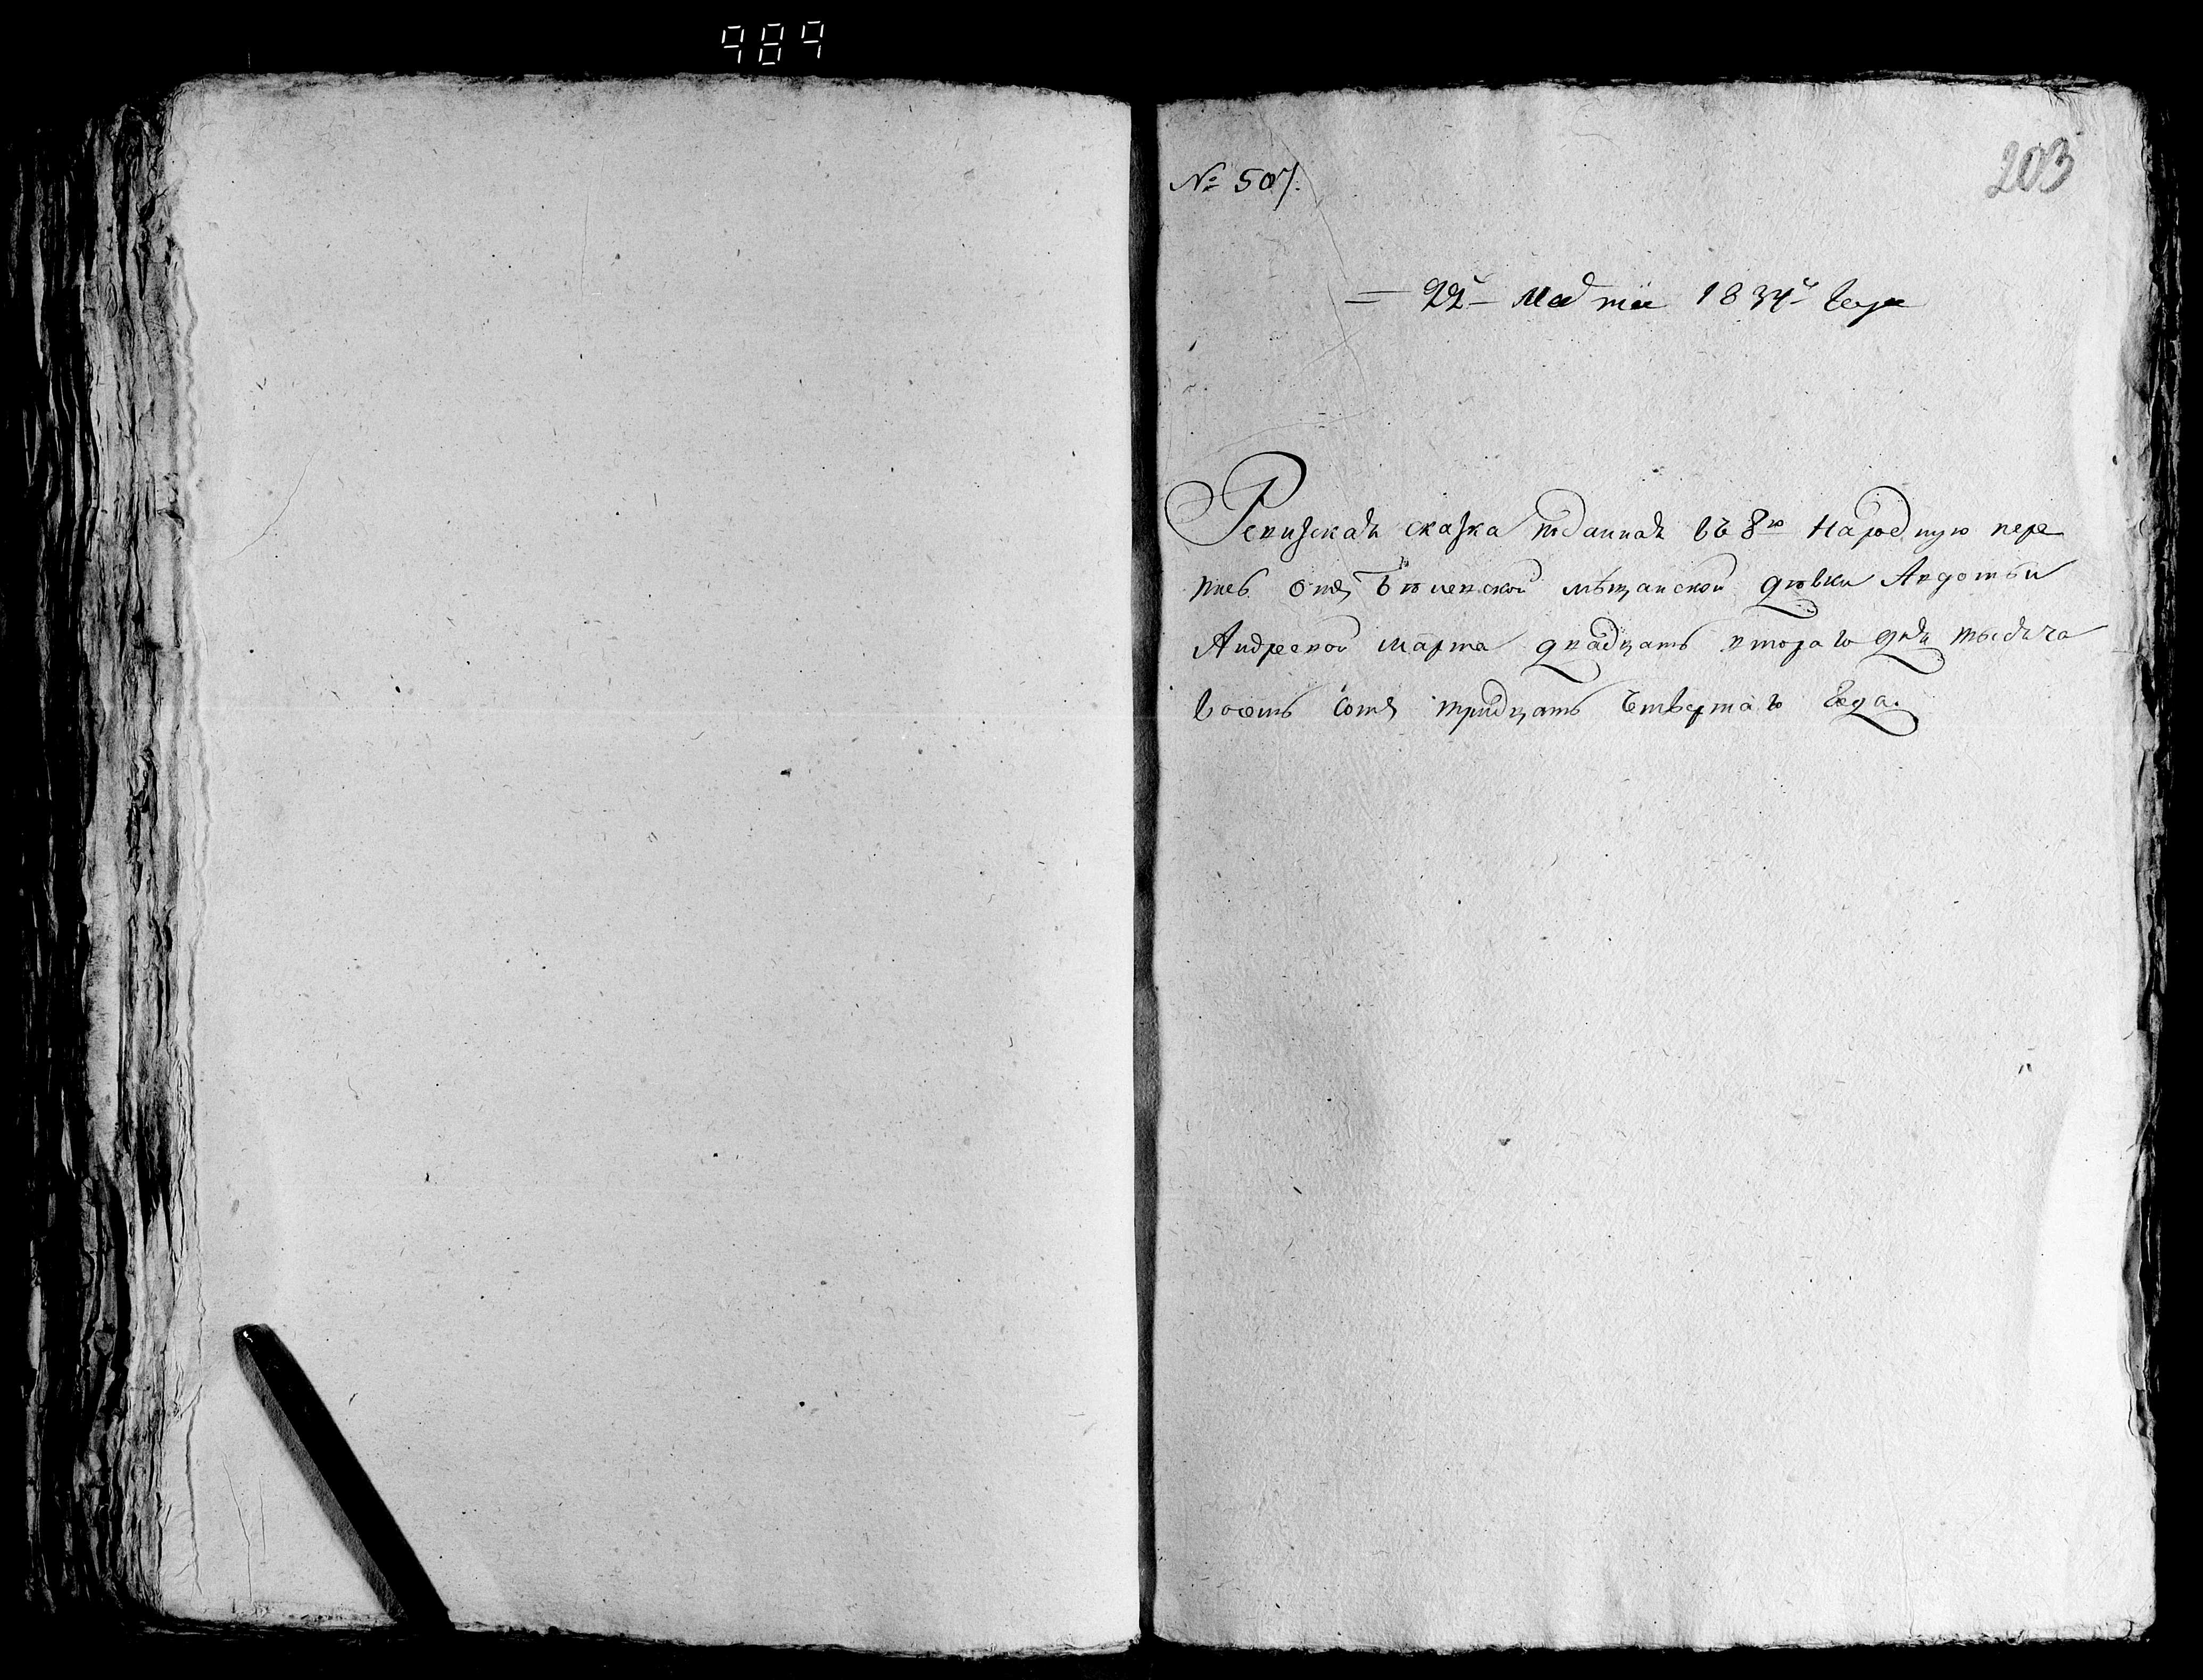 989
203
№ 507.
22го Марта 1834го Года
Ревизская сказка поданная въ 8ю Народную пере
пись отъ Бѣлевской мѣщанской дѣвки Авдотьи
Андреевой марта двадцать втораго дня тысяча
восемь сотъ тридцать четвертаго года.